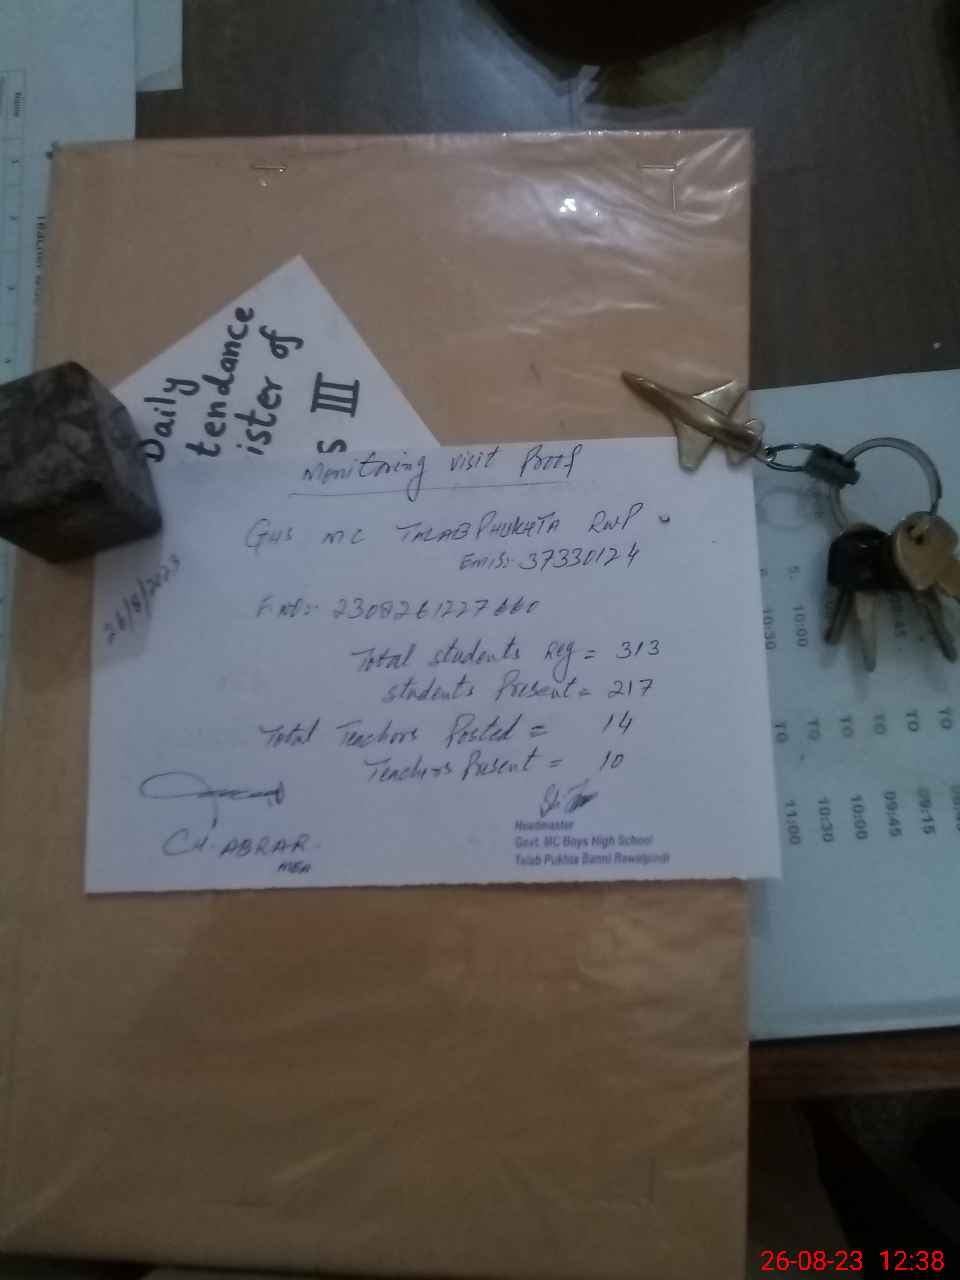 Daily
tendance
ister of
s III
Monitoring visit Proof
GHS MC TALAB PHUKHTA RWP
EMIS:- 37330124
F.NO:- 2308261227660
26/8/2023
Total students Reg = 313
students Present = 217
Total Teachers Posted = 14
Teachers Present = 10
CH. ABRAR
MEA
Headmaster
Govt. MC Boys High School
Talab Pukhta Banni Rawalpindi
Name
1
2
3
4
5.
10:00
10:30
09:45
TO
TO
TO
TO
TO
TO
11:00
10:30
10:00
09:45
09:15
26-08-23 12:38